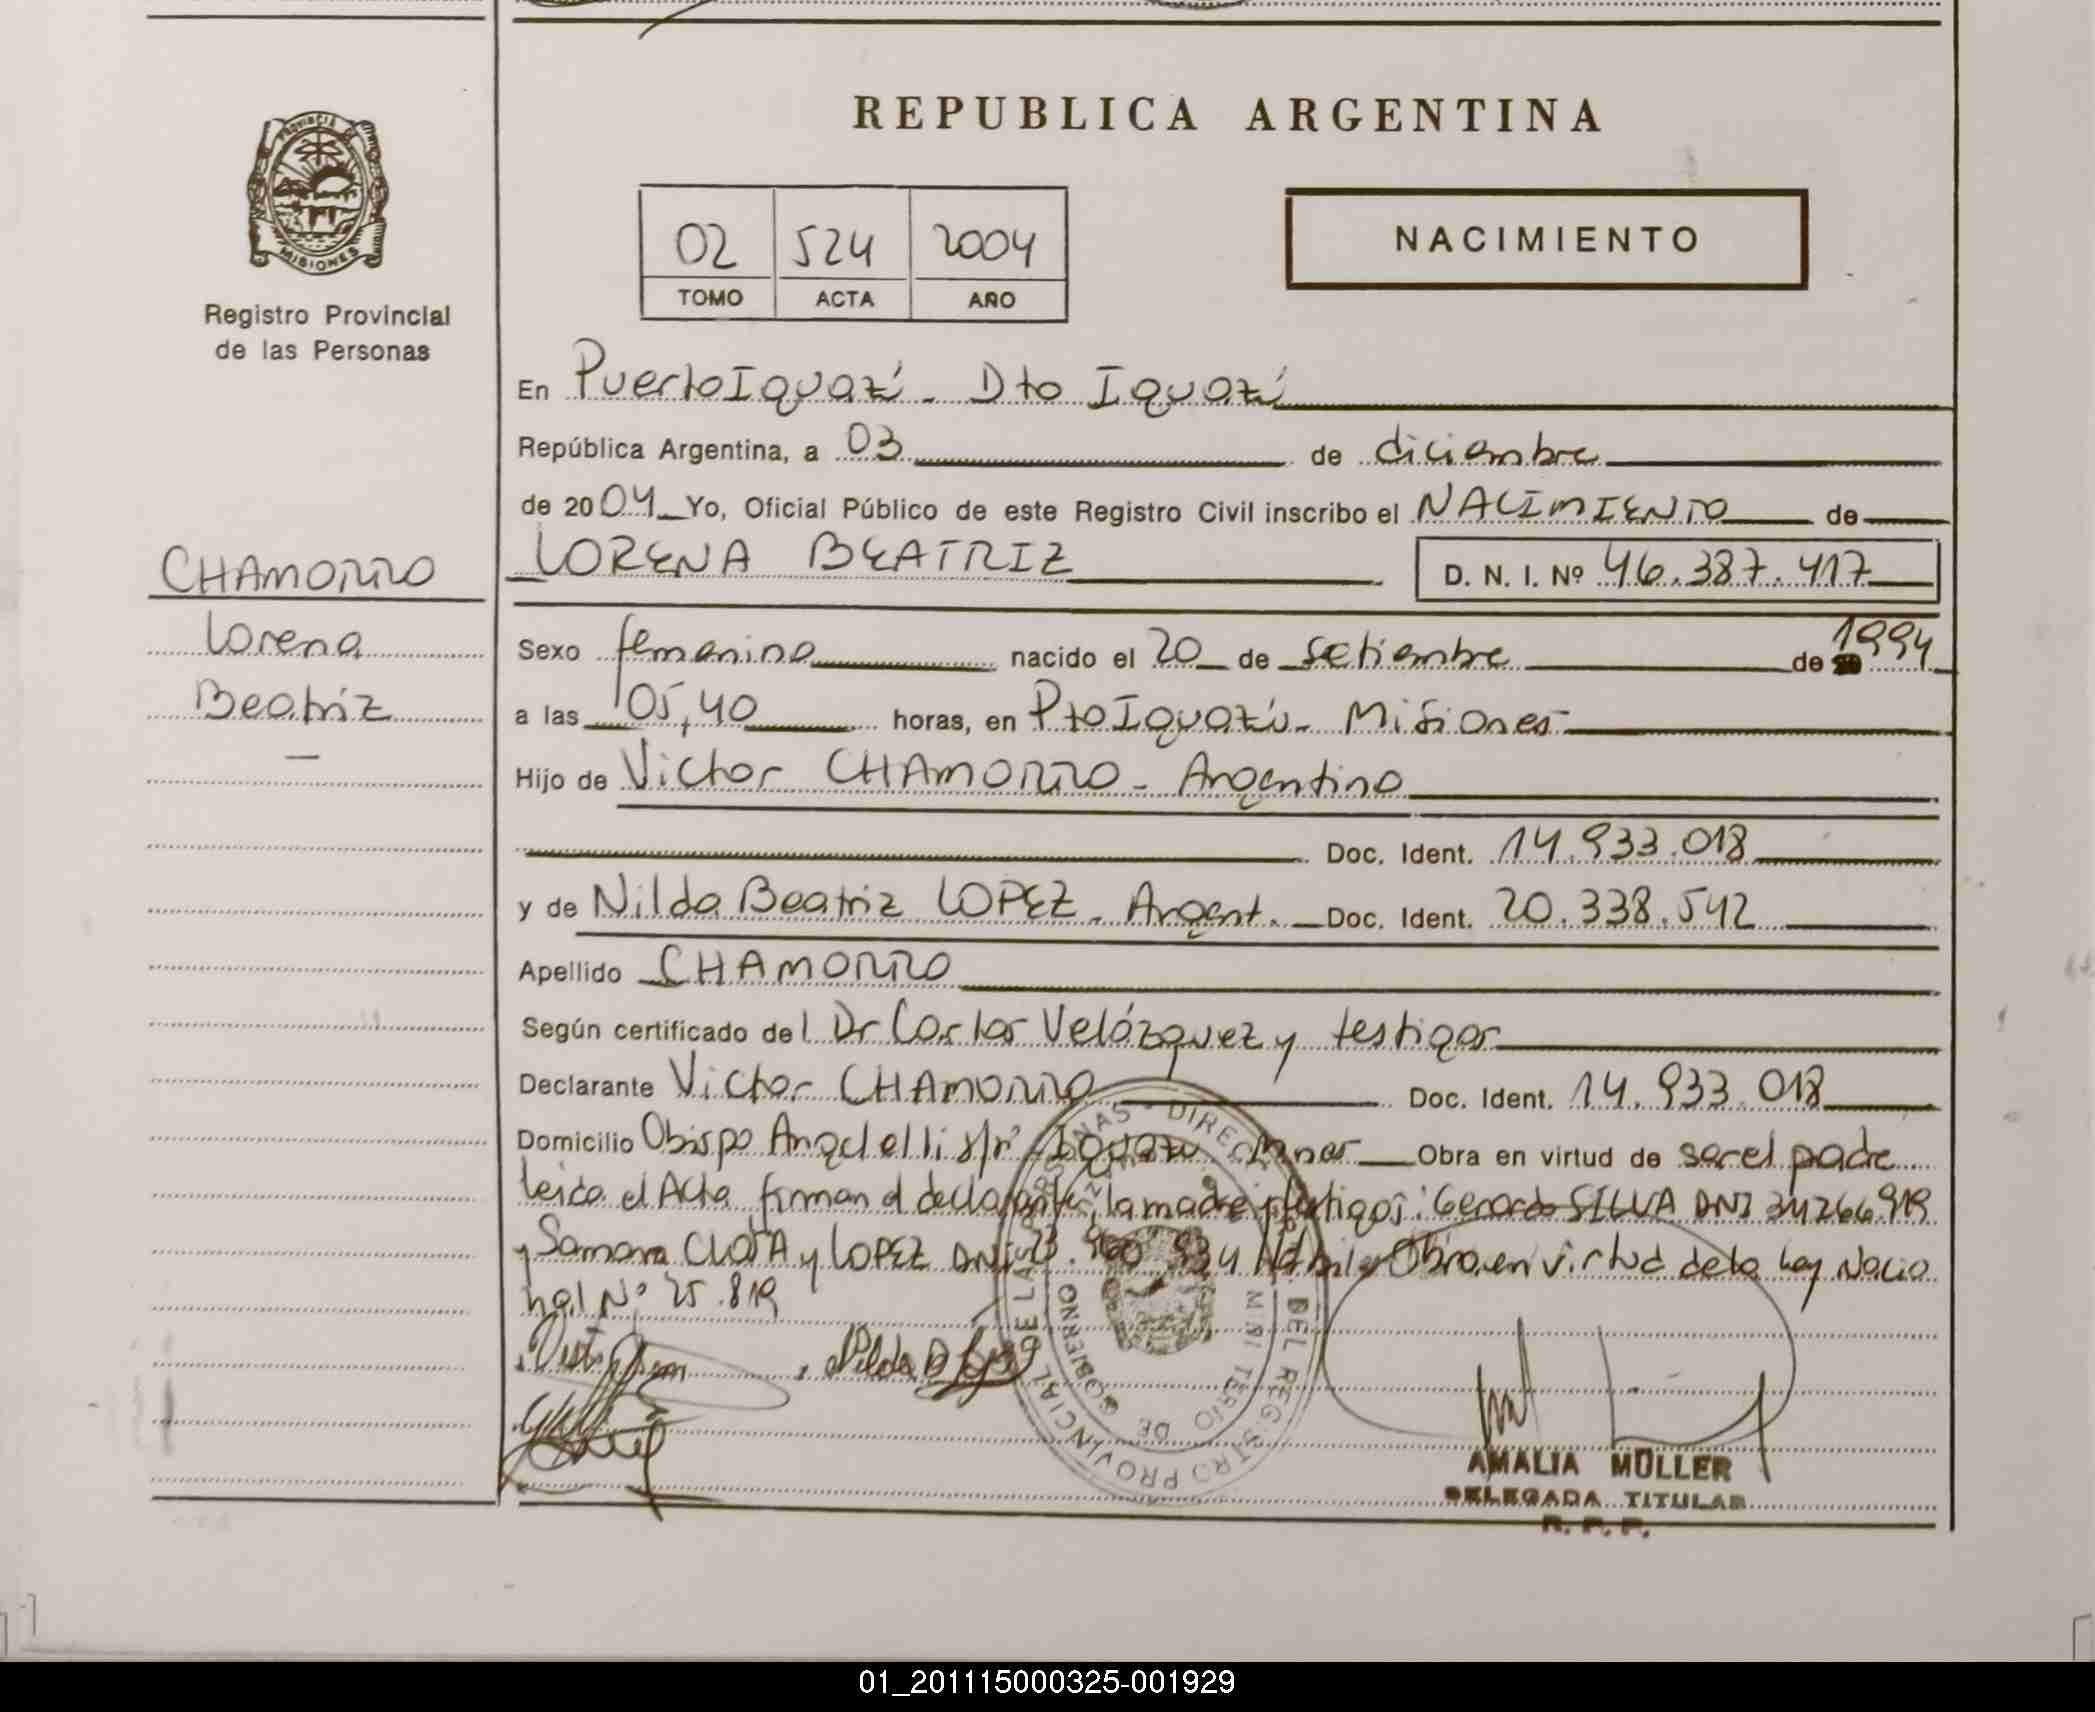 REPUBLICA ARGENTINA
PROVINCIA DE
MISIONES
Registro Provincial
de las Personas
02 524 2004
TOMO ACTA AÑO
NACIMIENTO
En Puerto Iguazú - Dto Iguazú
República Argentina, a 03 de diciembre
de 2004 Yo, Oficial Público de este Registro Civil inscribo el NACIMIENTO de
CHAMORRO
Lorena
Beatriz
LORENA BEATRIZ D. N. I. Nº 46.387.417
Sexo femenino nacido el 20 de setiembre de 1994
a las 05,40 horas, en Pto Iguazú - Misiones
Hijo de Victor CHAMORRO - Argentino
Doc. Ident. 14.933.018
y de Nilda Beatriz LOPEZ - Argent. Doc. Ident. 20.338.542
Apellido CHAMORRO
Según certificado del Dr Carlos Velázquez y testigos
Declarante Victor CHAMORRO Doc. Ident. 14.933.018
Domicilio Obispo Angelelli s/nº Iguazu Mnes Obra en virtud de ser el padre
leida el Acta firman el declarante, la madre y testigos: Gerardo SILVA DNI 34266.919
y Samara y LOPEZ DNI Obra en virtud de la Ley Nacio
nal Nº 25.819
DIRECC DEL REGISTRO PROVINCIAL DE LAS PERSONAS
MINISTERIO DE GOBIERNO
AMALIA MÜLLER
DELEGADA TITULAR
R. P. P.
01_201115000325-001929